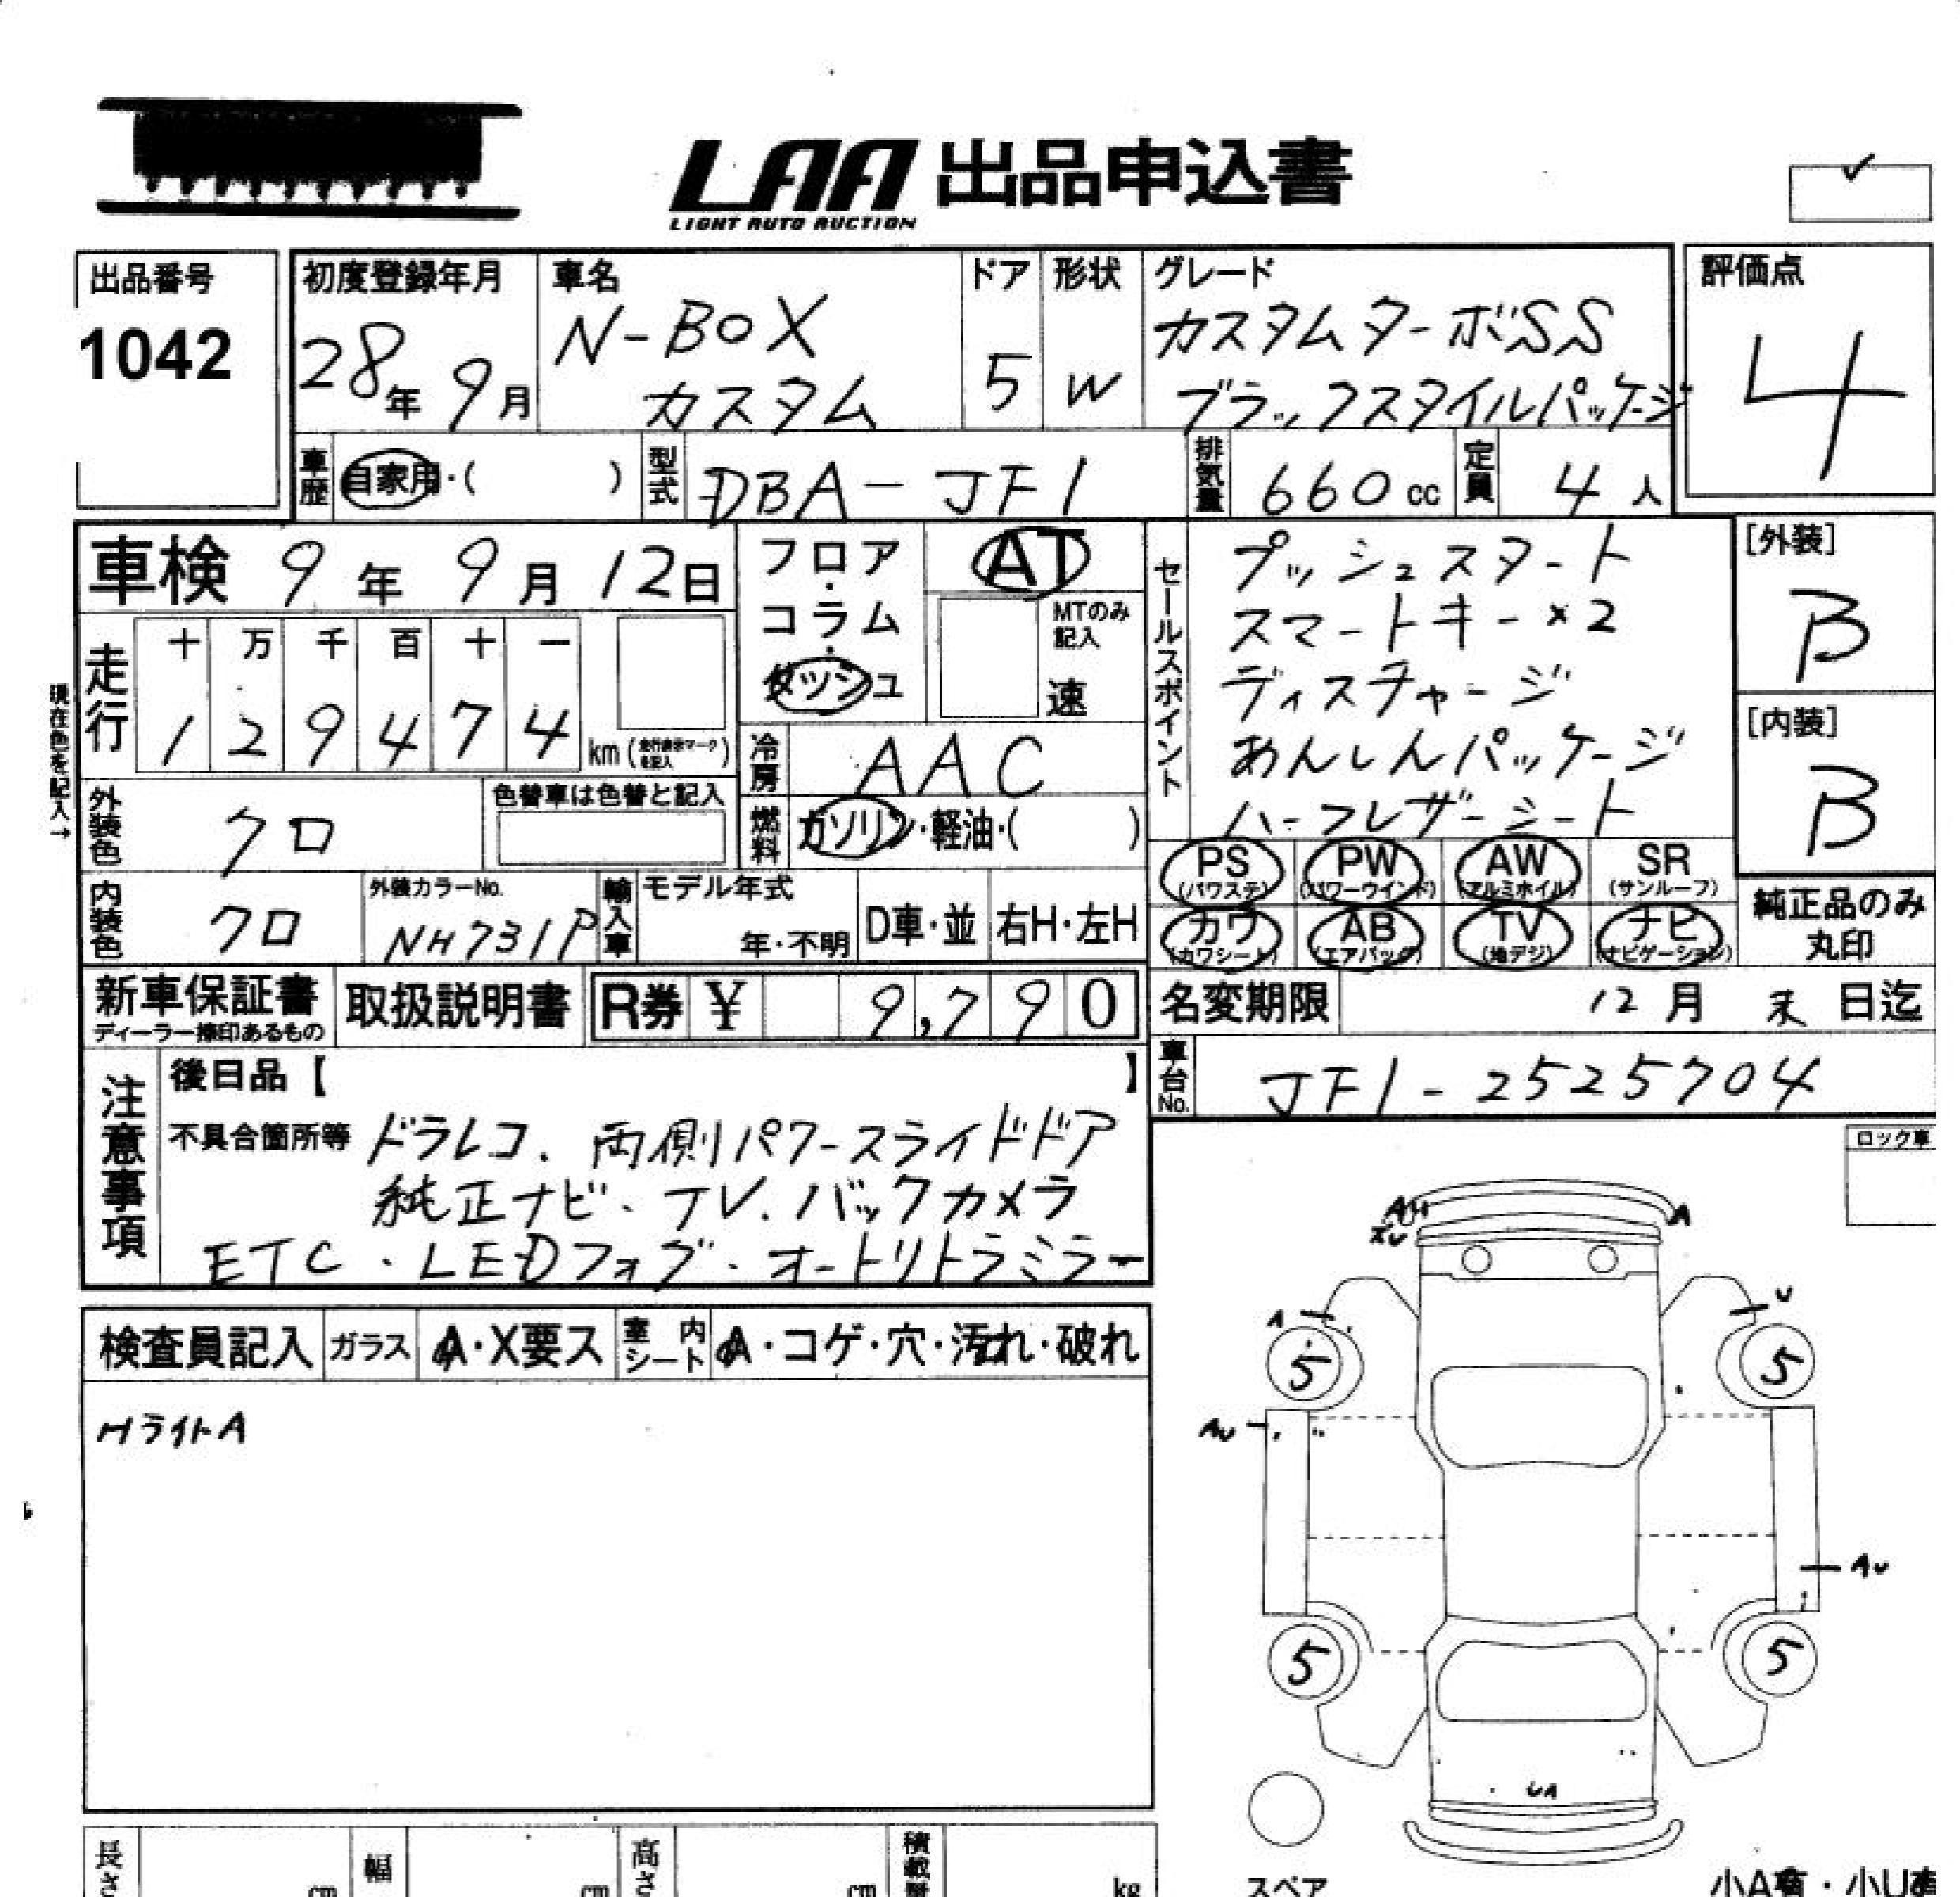 LAA 出品申込書
LIGHT AUTO AUCTION
出品番号
1042
初度登録年月
28年 9月
車名
N-BOX
カスタム
ドア
5
形状
W
グレード
カスタムターボSS
ブラックスタイルパッケージ
評価点
4
車歴
自家用・( )
型式
DBA-JF1
排気量
660 cc
定員
4 人
車検 9年 9月 12日
フロア・コラム・ダッシュ
AT
MTのみ
記入
速
セールスポイント
プッシュスタート
スマートキー×2
ディスチャージ
あんしんパッケージ
ハーフレザーシート
[外装]
B
[内装]
B
走行
十 万 千 百 十 一
1 2 9 4 7 4 km (走行表示マークを記入)
現在色を記入→
冷房
AAC
外装色
クロ
色替車は色替と記入
燃料
ガソリン・軽油・( )
内装色
クロ
外装カラーNo.
NH731P
輸入車
モデル年式
年・不明
D車・並
右H・左H
PS (パワステ)
PW (パワーウインド)
AW (アルミホイル)
SR (サンルーフ)
カワ (カワシート)
AB (エアバック)
TV (地デジ)
ナビ (ナビゲーション)
純正品のみ
丸印
新車保証書
ディーラー捺印あるもの
取扱説明書
R券 ¥ 9,790
名変期限 12月 末 日迄
車台No.
JF1-2525704
注意事項
後日品【 】
不具合箇所等 ドラレコ、両側パワースライドドア
純正ナビ・TV.バックカメラ
ETC・LEDフォグ・オートリトラミラー
ロック車
検査員記入
ガラス A・X要ス
室内シート A・コゲ・穴・汚れ・破れ
HライトA
A
A
U
5
5
AU
AU
5
5
UA
スペア
長さ cm
幅 cm
高さ cm
積載量 kg
小A有・小U有